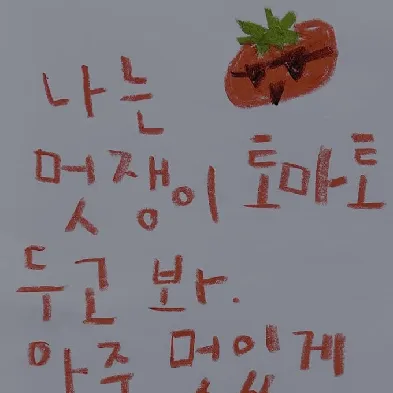 나는
멋쟁이 토마토
두고 봐.
아주 멋있게